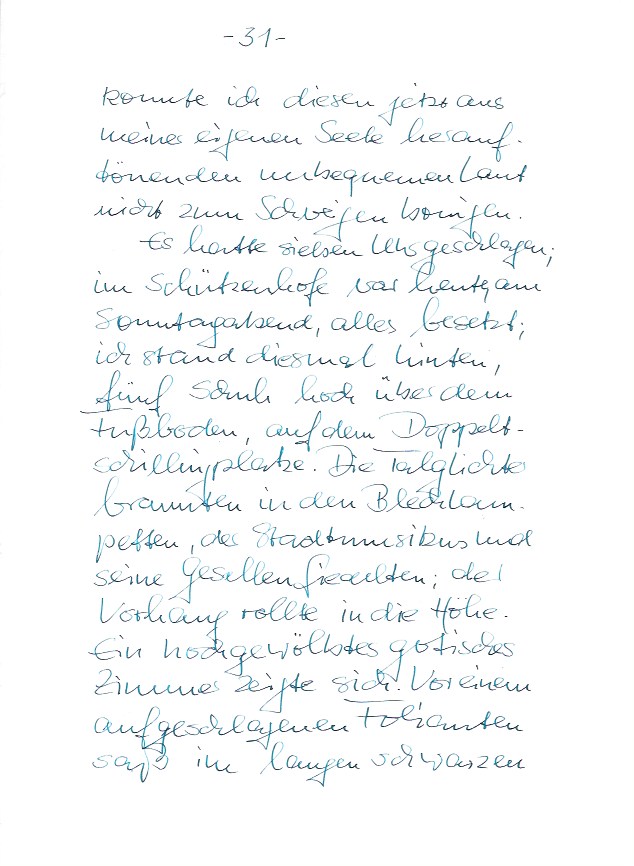 -31-
konnte ich diesen jetzt aus
meiner eigenen Seele herauf-
tönenden unbequemen Laut
nicht zum Schweigen bringen.
Es hatte sieben Uhr geschlagen;
im Schützenhofe war heute, am
Sonntagabend, alles besetzt;
ich stand diesmal hinten,
fünf Schuh hoch über dem
Fußboden, auf dem Doppelt-
schillingplatze. Die Talglichter
brannten in den Blechlam-
petten, der Stadtmusikus und
seine Gesellen fiedelten; der
Vorhang rollte in die Höhe.
Ein hochgewölbtes gotisches
Zimmer zeigte sich. Vor einem
aufgeschlagenen Folianten
saß im langen schwarzen